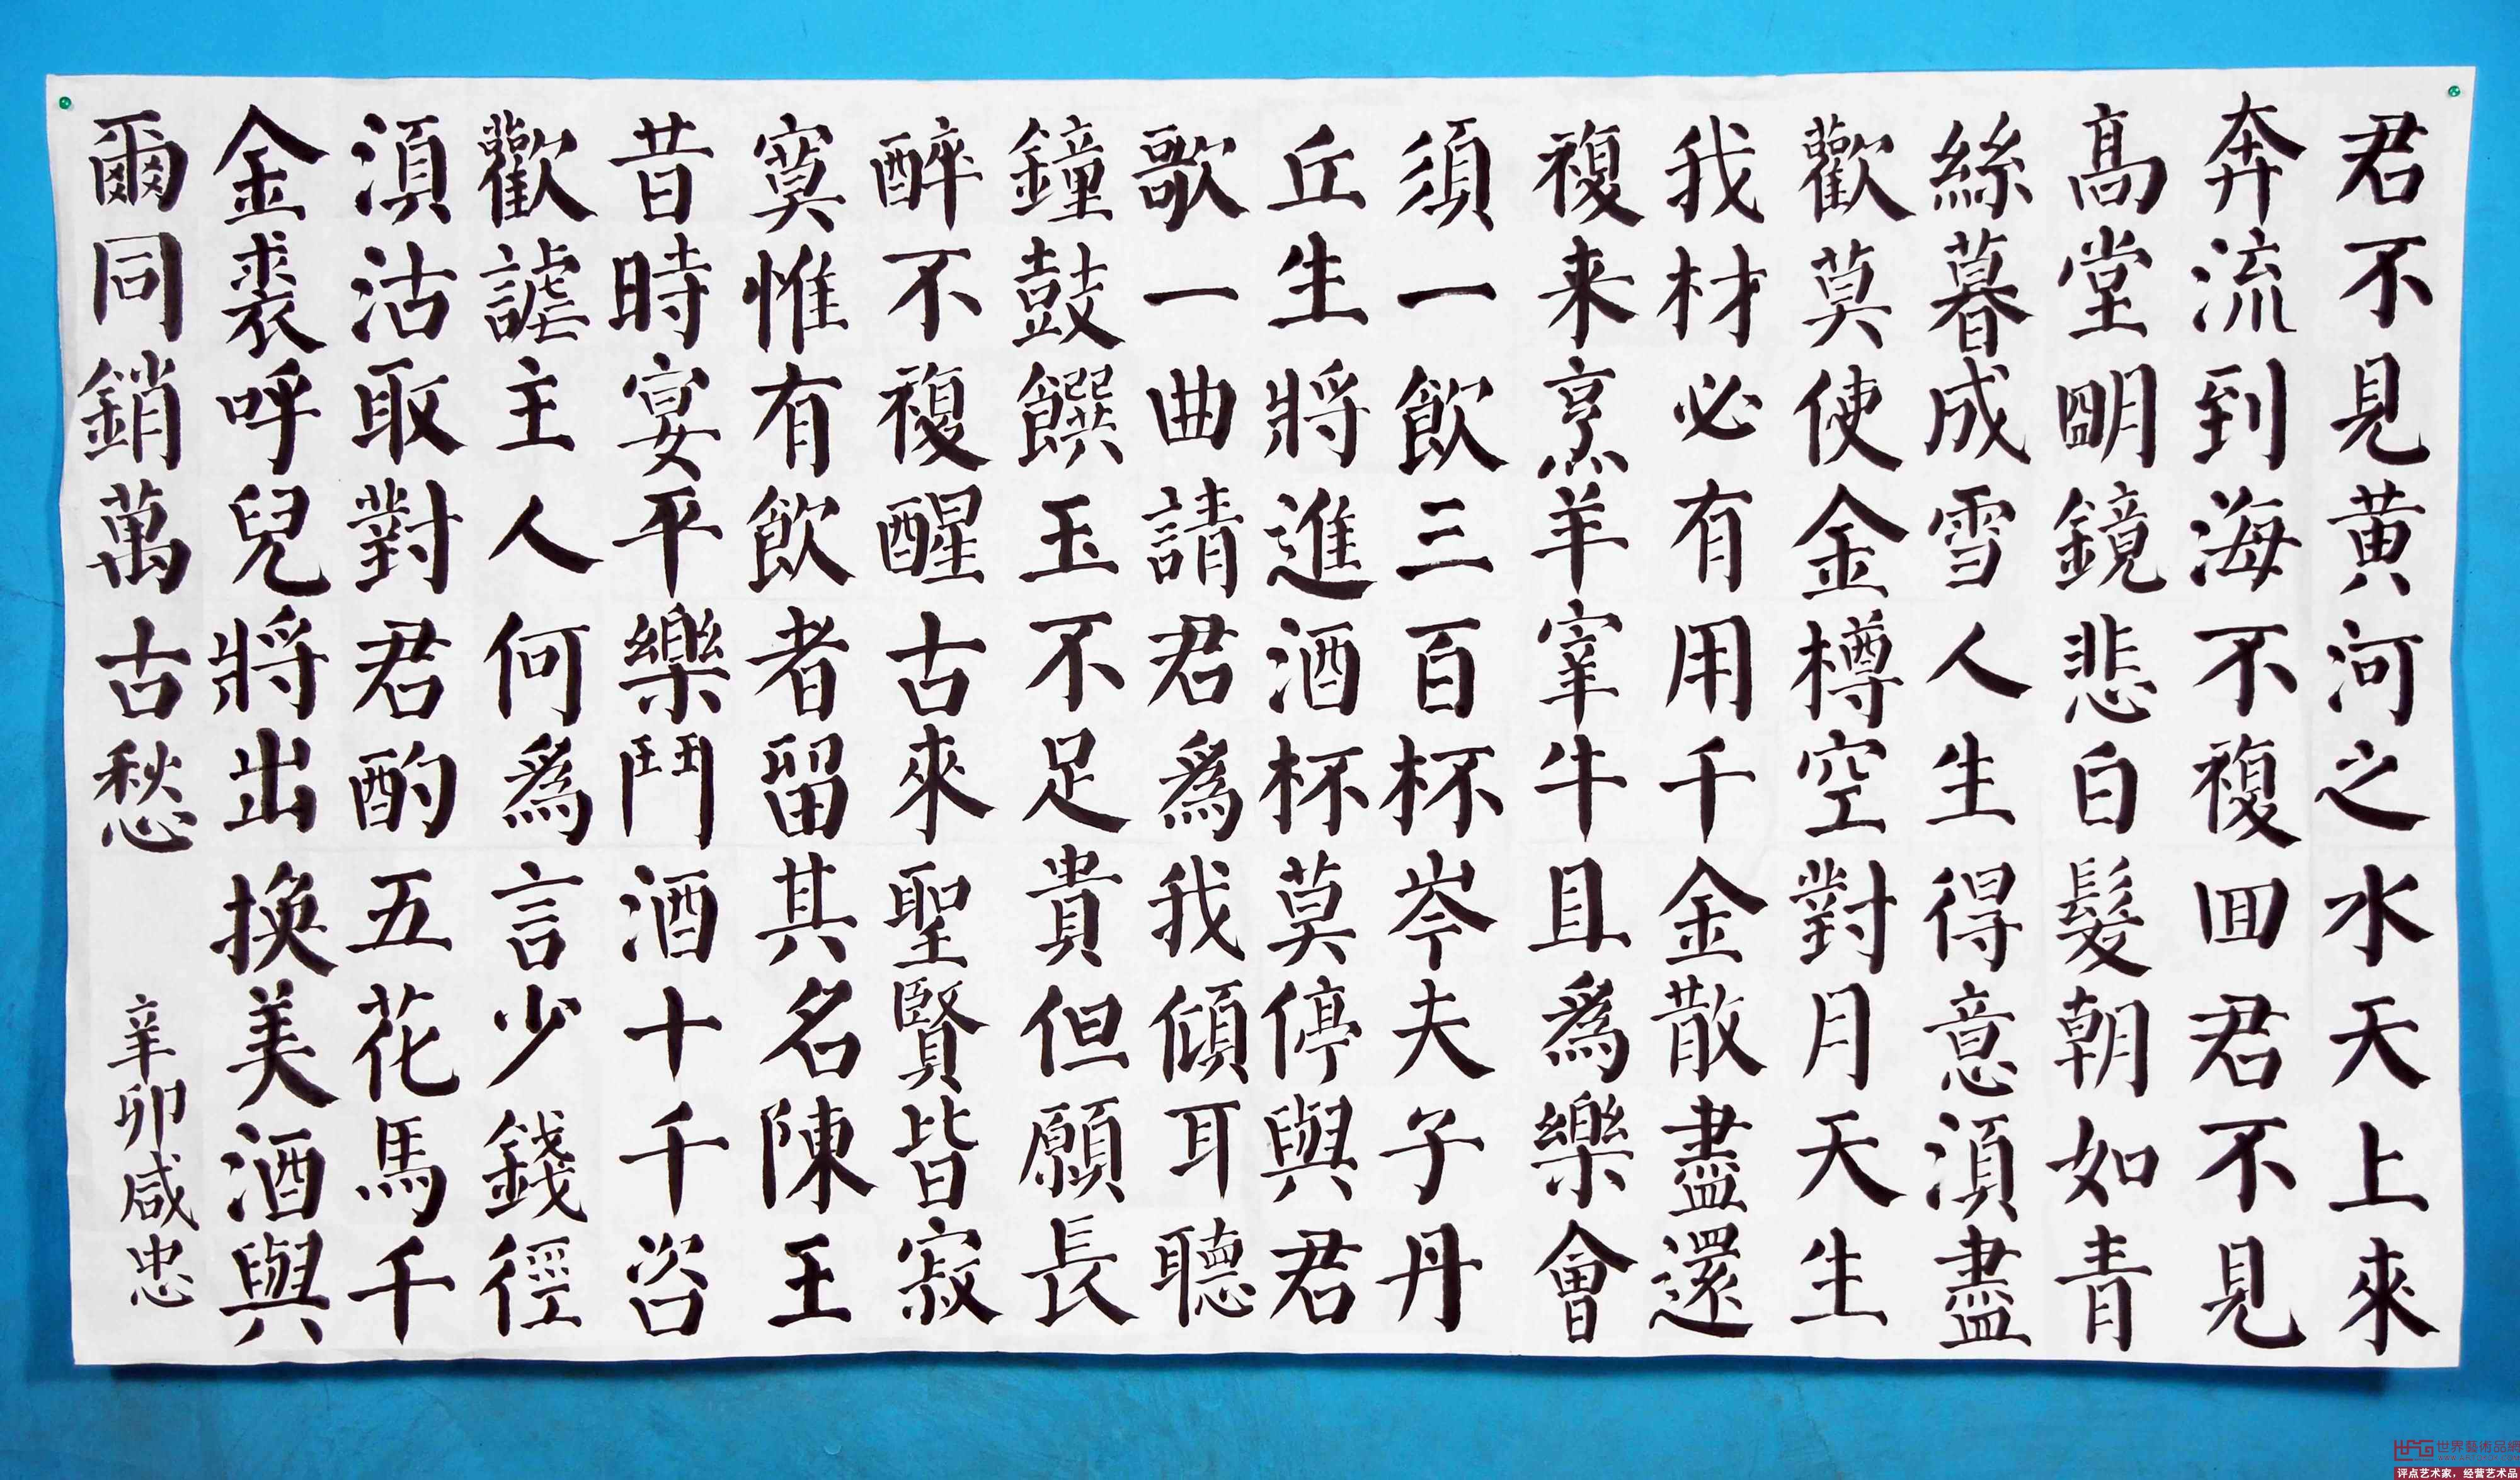 君不見黄河之水天上來
奔流到海不複囬君不見
高堂朙鏡悲白髮朝如青
絲暮成雪人生得意湏盡
歡莫使金樽空對月天生
我材必有用千金散盡還
複来烹羊宰牛且爲樂會
須一飲三百杯岑夫子丹
丘生將進酒杯莫停與君
歌一曲請君爲我傾耳聽
鐘鼓饌玉不足貴但願長
醉不複醒古來聖賢皆寂
寞惟有飲者留其名陳王
昔時宴平樂鬥酒十千咨
歡謔主人何爲言少錢徑
湏沽取對君酌五花馬千
金裘呼兒將出換美酒與
爾同銷萬古愁
辛卯咸忠
世界藝術品網
评点艺术家，经营艺术品